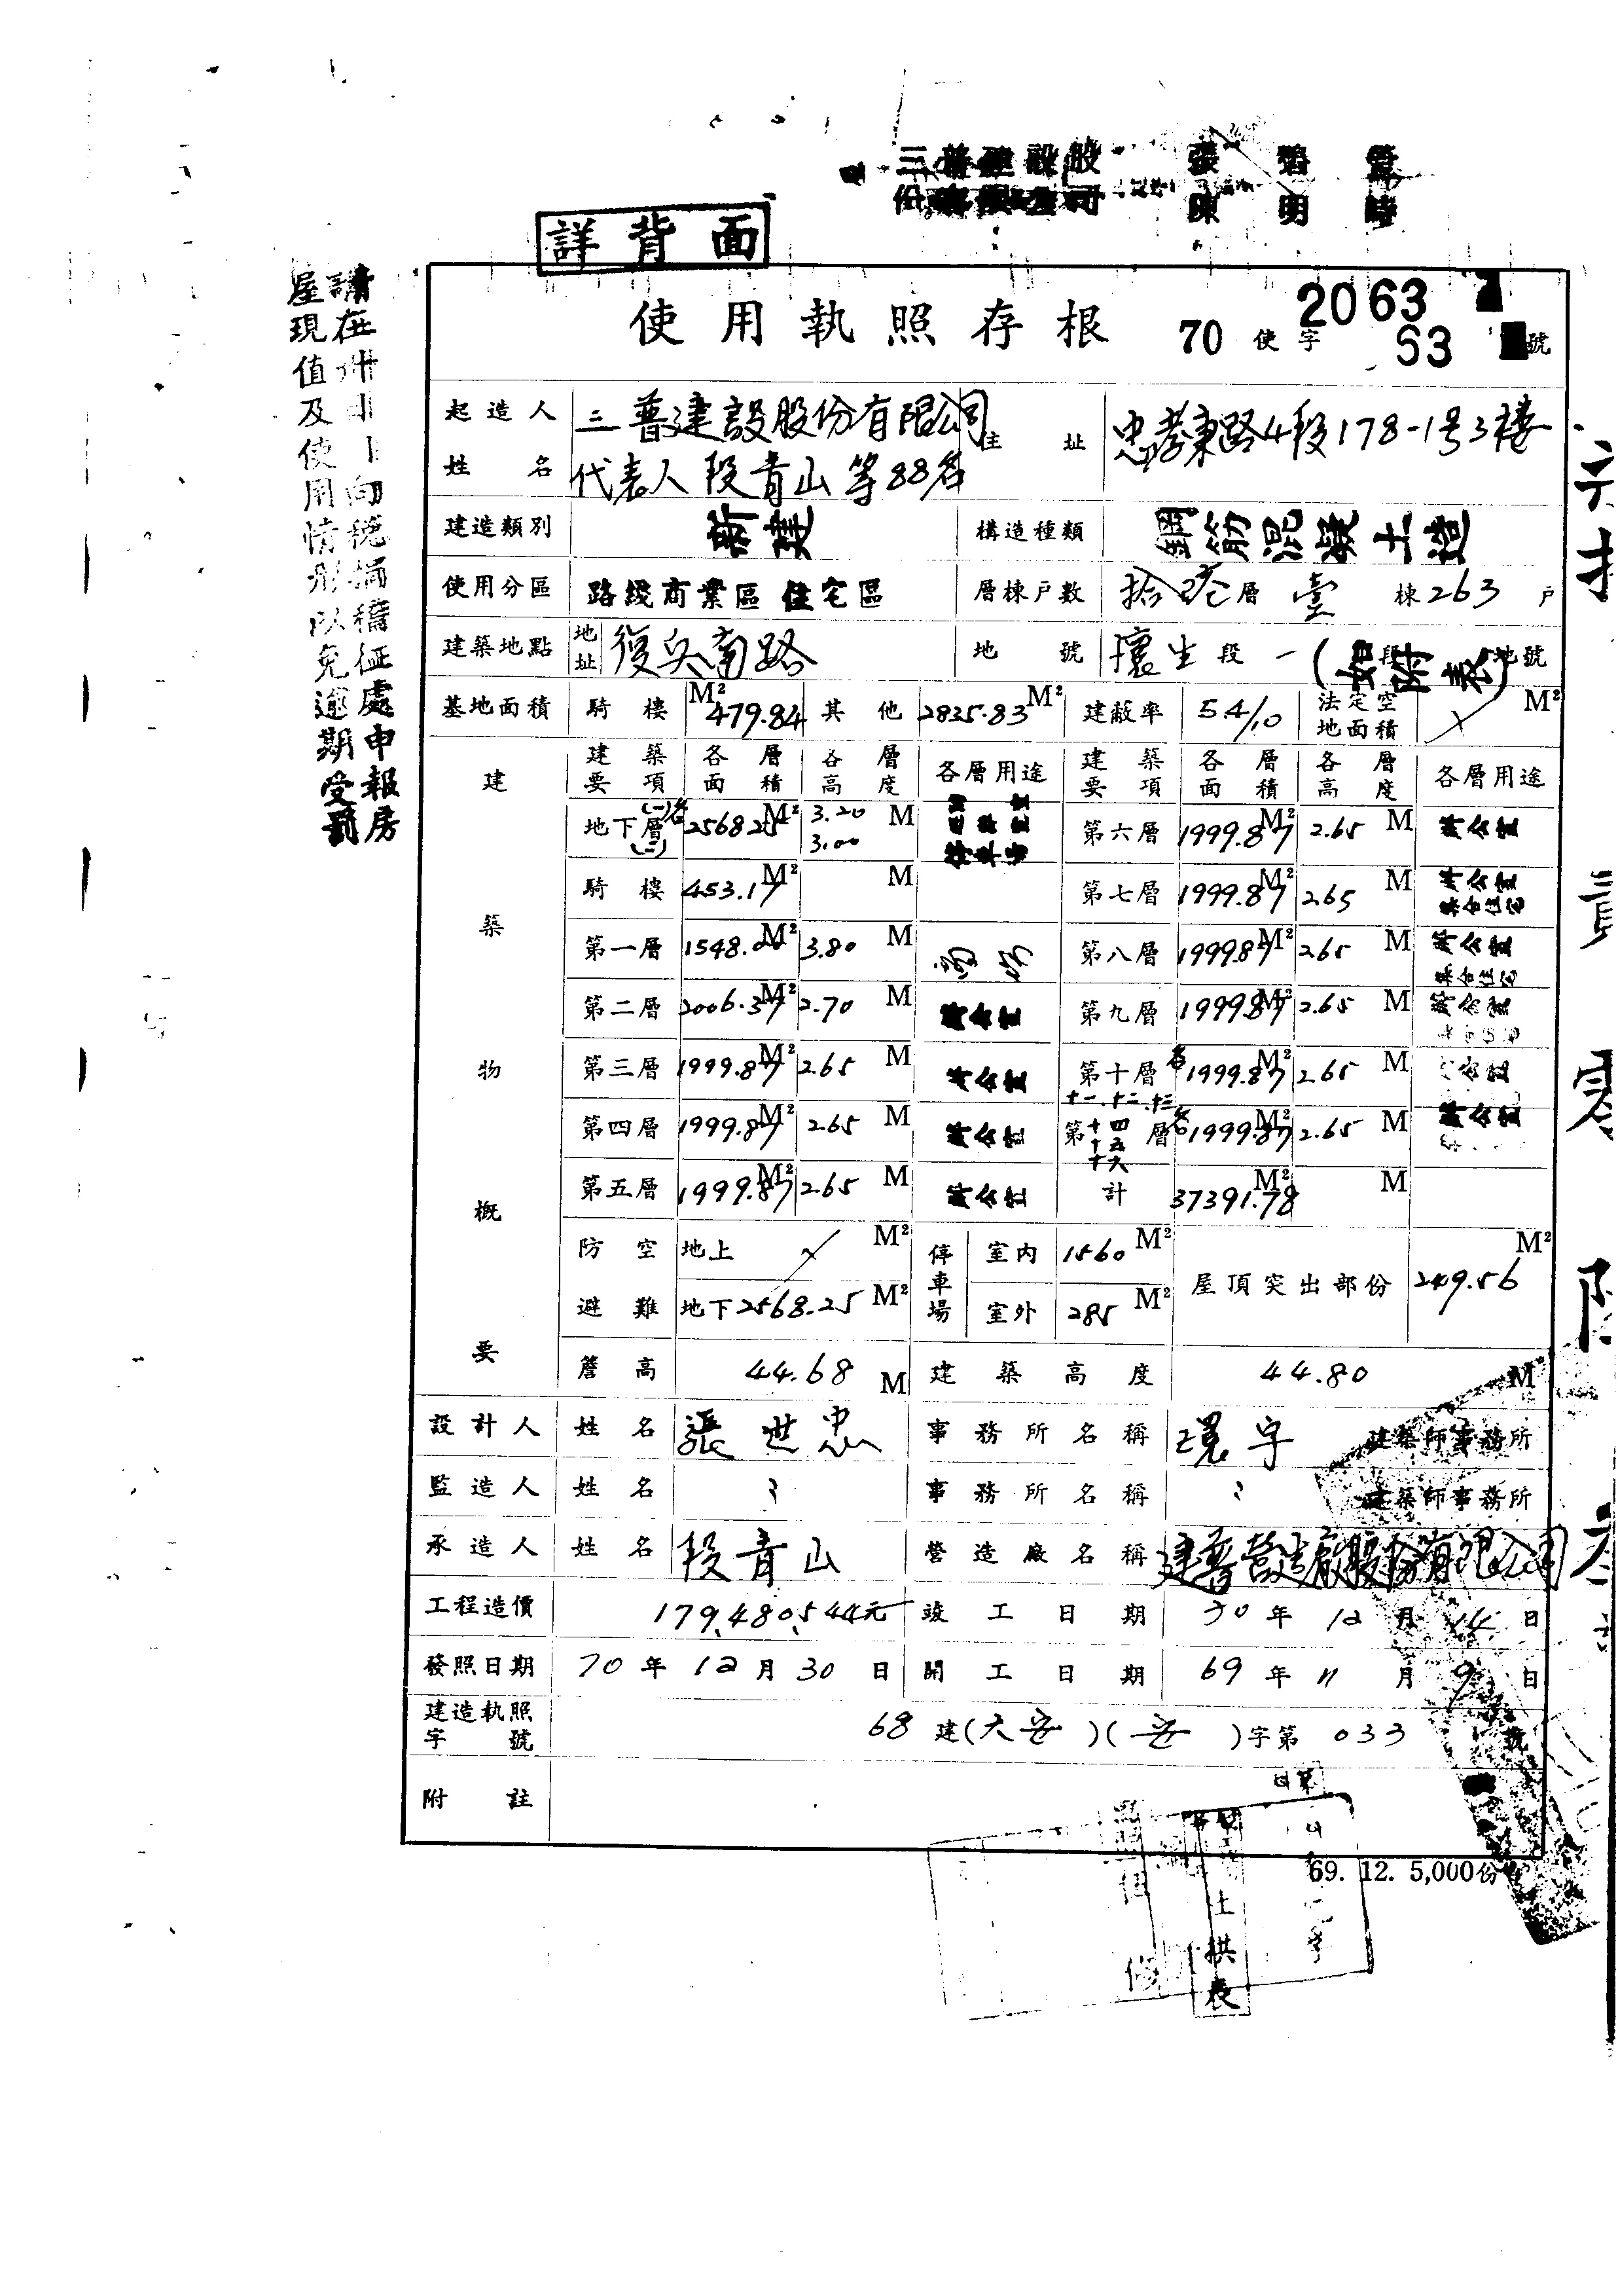 三普建設股 張 碧
份有限公司 陳 明
詳背面
請在 向稅捐稽征處申報房
屋現值及使用情形以免逾期受罰
使用執照存根 70 使字 2063 號
63
起造人姓名 三普建設股份有限公司 住址 忠孝東路4段178-1号3樓
代表人 段青山等88名
建造類別 新建 構造種類 鋼筋混凝土造
使用分區 路綫商業區 住宅區 層棟戶數 拾陸層 壹棟 263 戶
建築地點 地址 復兴南路 地號 懷生段一(如附表)段 地號
基地面積 騎樓 479.84 M² 其他 2835.83 M² 建蔽率 5.4/10 法定空地面積 M²
建築物概要
建築要項 各層面積 各層高度 各層用途 建築要項 各層面積 各層高度 各層用途
地下層(一)(二)各 2568.25 M² 3.20 3.00 M 停車場 第六層 1999.87 M² 2.65 M 辦公室
騎樓 453.17 M² M 第七層 1999.87 M² 2.65 M 辦公室 集合住宅
第一層 1548.00 M² 3.80 M 商場 第八層 1999.87 M² 2.65 M 辦公室 集合住宅
第二層 2006.37 M² 2.70 M 辦公室 第九層 1999.87 M² 2.65 M 辦公室
第三層 1999.87 M² 2.65 M 辦公室 第十層各 1999.87 M² 2.65 M 辦公室
第四層 1999.87 M² 2.65 M 辦公室 第十一.十二.十三十四十五十六層各 1999.87 M² 2.65 M 辦公室
第五層 1999.87 M² 2.65 M 辦公室 計 37391.78 M² M
防空避難 地上 M² 停車場 室內 1560 M² 屋頂突出部份 249.56 M²
地下 2568.25 M² 室外 285 M²
簷高 44.68 M 建築高度 44.80 M
設計人 姓名 張世忠 事務所名稱 環宇 建築師事務所
監造人 姓名 〃 事務所名稱 〃 建築師事務所
承造人 姓名 段青山 營造廠名稱 建普營造廠股份有限公司
工程造價 179,480,544元 竣工日期 70年12月14日
發照日期 70年12月30日 開工日期 69年11月9日
建造執照字號 68 建(大安)(安)字第 033 號
附註
69. 12. 5,000份